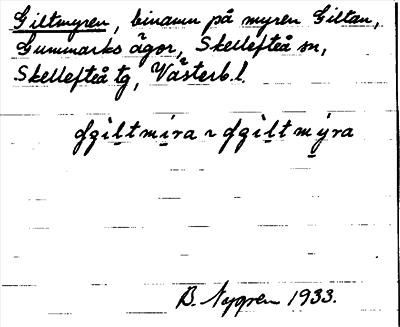 Giltmyren, binamn på myren Giltan,
Gummarks ägor, Skellefteå sn,
Skellefteå tg, Västerb.l.
ɖgiltmira ~ ɖgiltmýra
B. Nygren 1933.